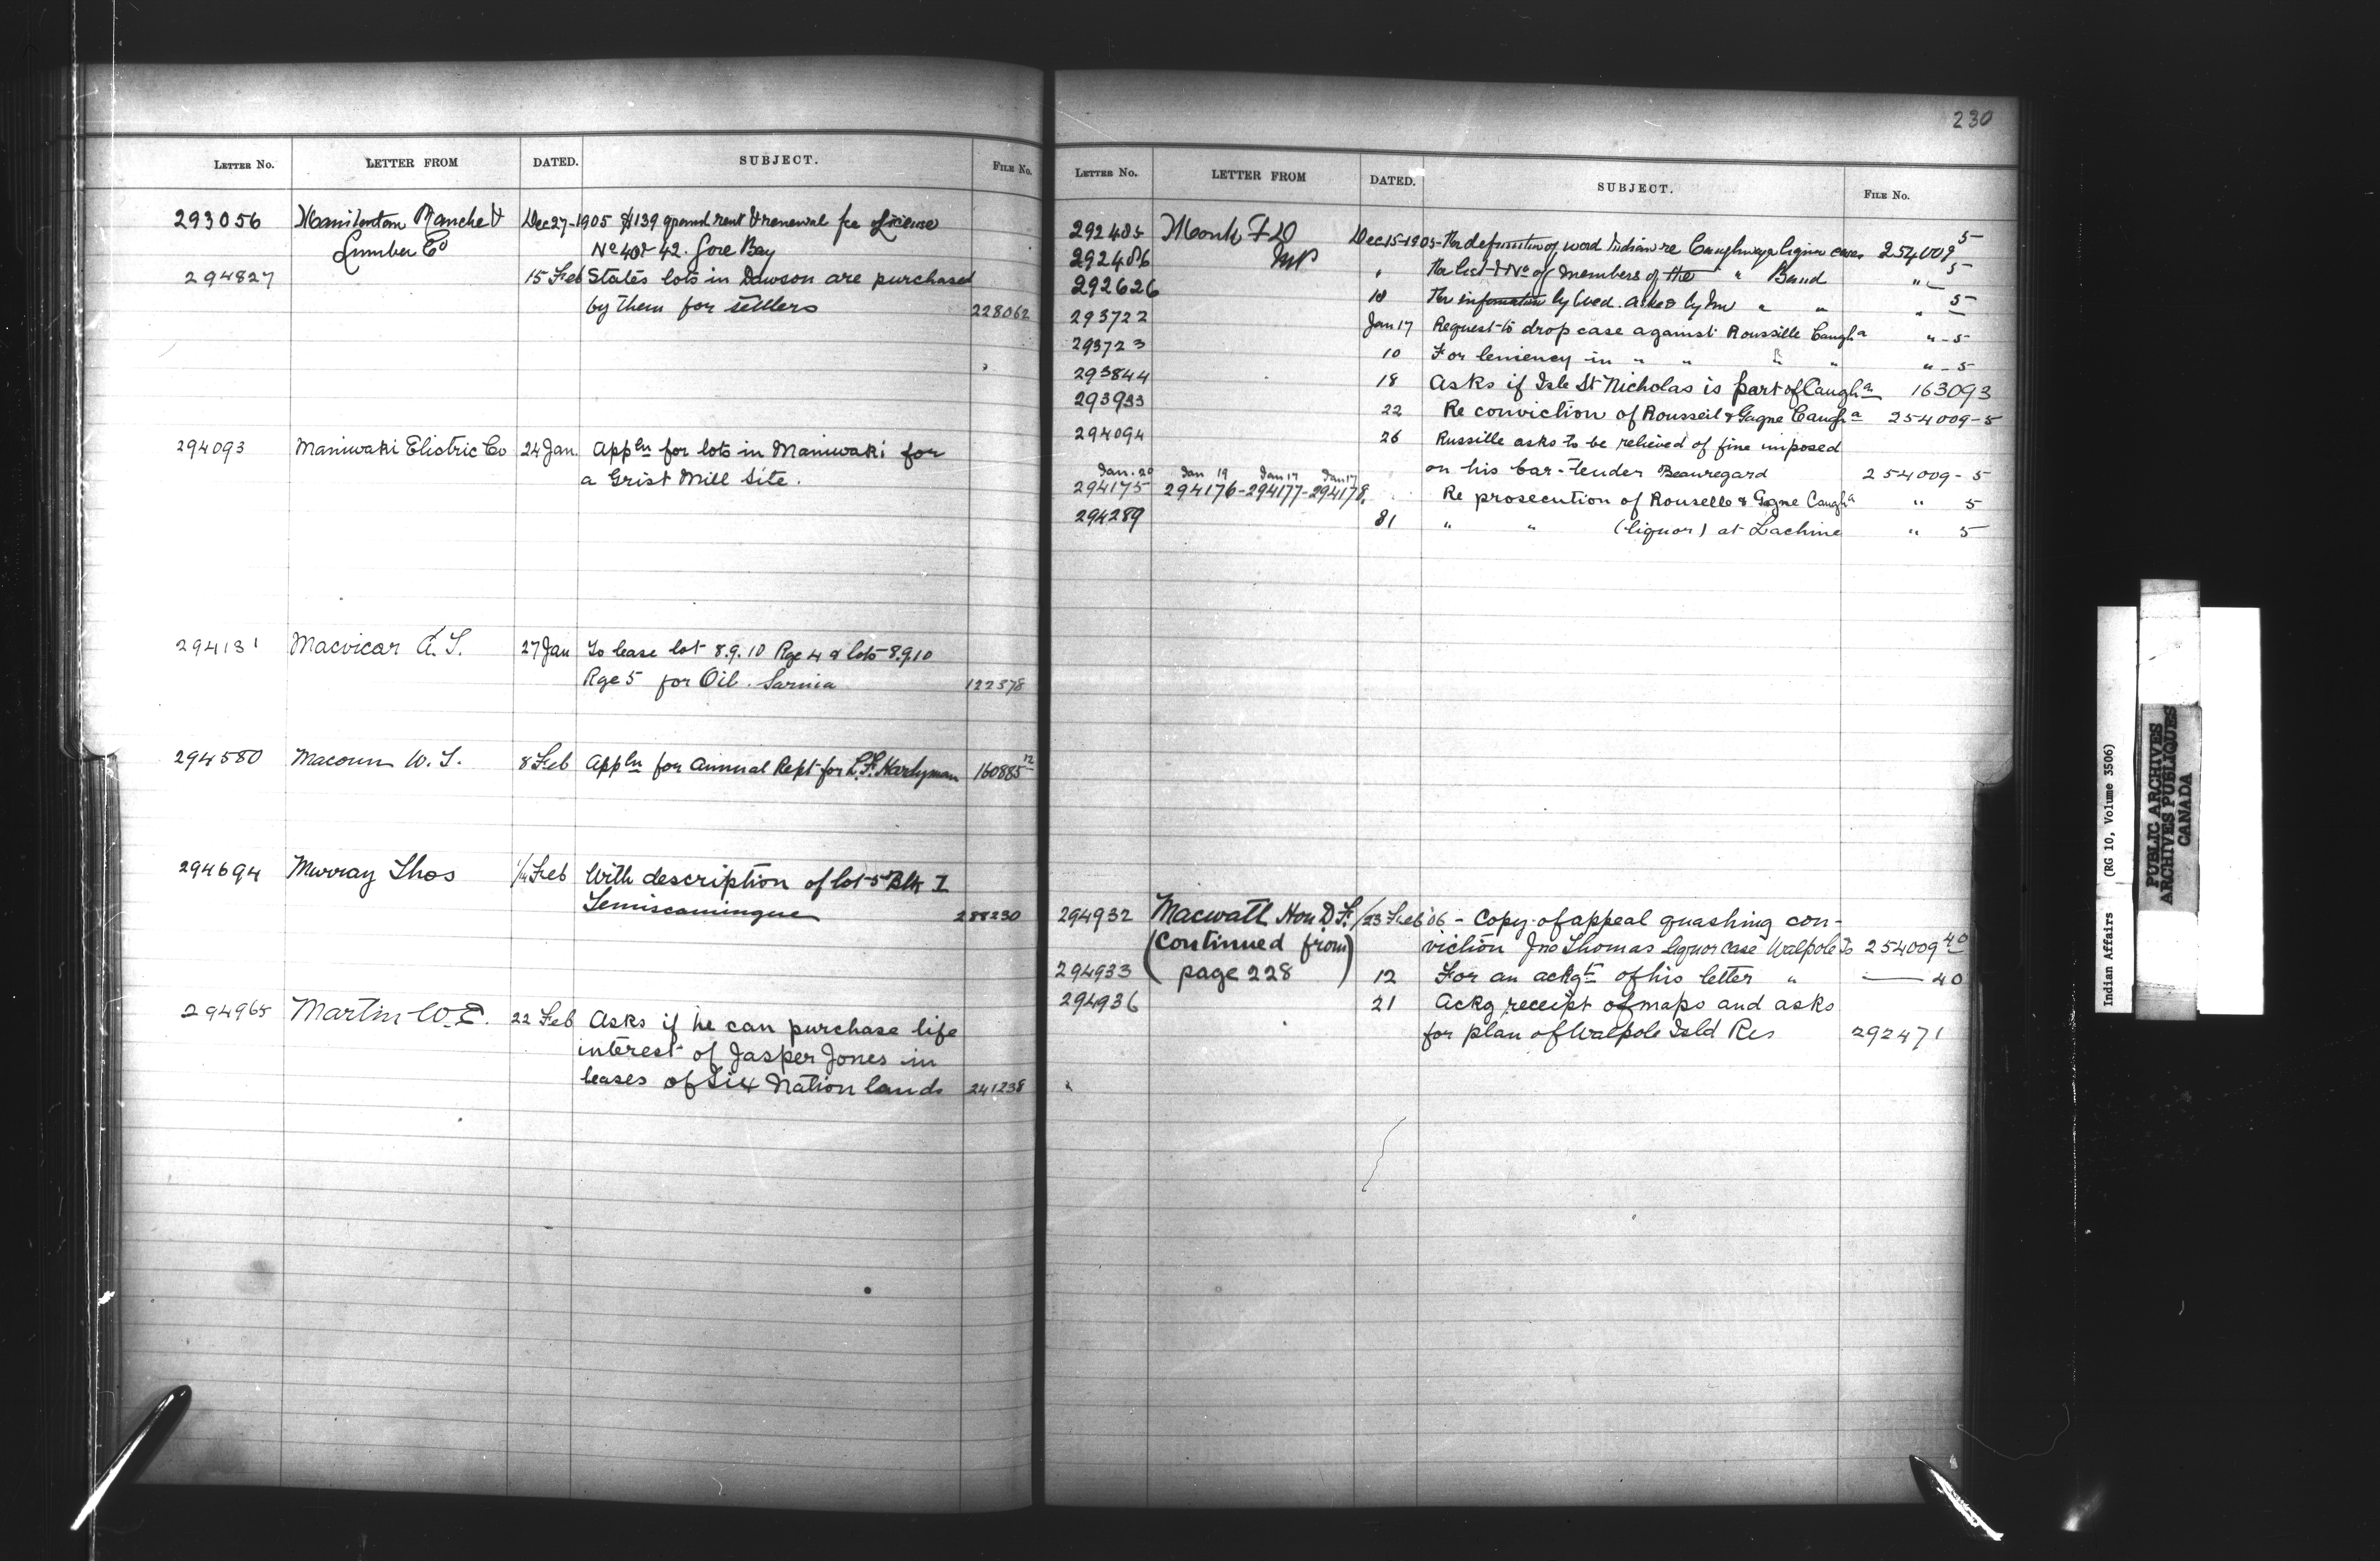 LETTER NO. LETTER FROM DATED. SUBJECT. FILE NO.
293056 Manitoulin Ranche & Dec 27-1905 $139 ground rent & renewal fee License
Lumber Co No 40 & 42. Gore Bay
294827 15 Feb States lots in Dawson are purchased
by them for settlers 228062
294093 Maniwaki Electric Co 24 Jan. Appln for lots in Maniwaki for
a Grist Mill Site.
294131 Macvicar A. T. 27 Jan To lease lot 8.9.10 Rge 4 & lots 8.9.10
Rge 5 for Oil. Sarnia 122378
294580 Macoun W. T. 8 Feb Appln for Annual Rept for 160885 12
294694 Murray Thos Feb With description of lot 5 Blk I
Temiscamingue
294965 Martin W. E. 22 Feb Asks if he can purchase life
interest of Jasper Jones in
leases of Six Nation lands 241238
230
LETTER NO. LETTER FROM DATED. SUBJECT. FILE NO.
292485 Monk F D Dec 15-1905- For definition of word Indian re Caughnaga liquor cases 254009 5
292486 MP " For list & No of members of the " Band " 5
292626 18 For information by Wed. asked by him " " " 5
293722 Jan 17 Request to drop case against Roussille Caugha " - 5
293723 10 For leniency in " " " " " - 5
293844 18 Asks if Isle St Nicholas is part of Caugha 163093
293933 22 Re conviction of Rousseil & Gagne Caugha 254009-5
294094 26 Russille asks to be relieved of fine imposed
on his bar-tender Beauregard 254009-5
Jan. 20 Jan 19 Jan 17 Jan 17
294175 294176-294177-294178. Re prosecution of Rouselle & Gagne Caugha " 5
294289 31 " " (liquor) at Lachine " 5
294932 Macwatt Hon D. F. 23 Feb '06 - Copy of appeal quashing con-
(Continued from viction Jno Thomas liquor case Walpole Is 254009 40
294933 page 228) 12 For an ackgt of his letter " — 40
294936 21 Ackg receipt of maps and asks
for plan of Walpole Isld Res 292471
Indian Affairs (RG 10, Volume 3506)
PUBLIC ARCHIVES
ARCHIVES PUBLIQUES
CANADA